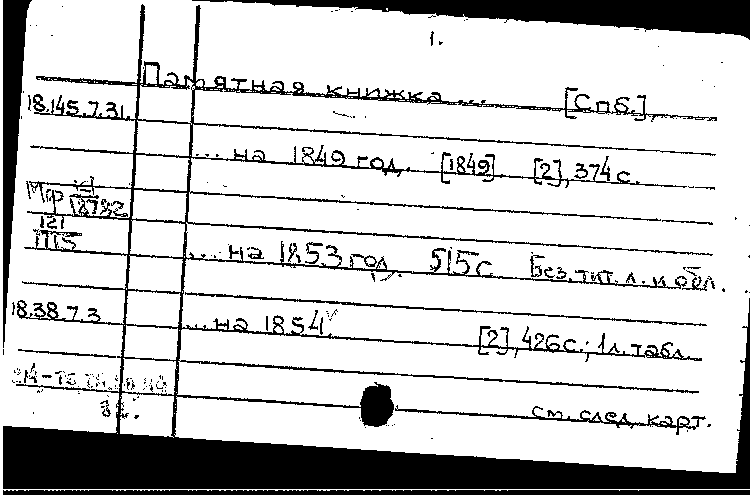 1.
Памятная книжка ... [Спб.],
18.145.7.31.
... на 1849 год. [1849]. [2], 374 с.
18782
121
1115
... на 1853 год. 515 с Без. тит. л. и обл.
18.38.7.3
... на 1854 [2], 426 с.; 1 л. табл.
см. след. карт.